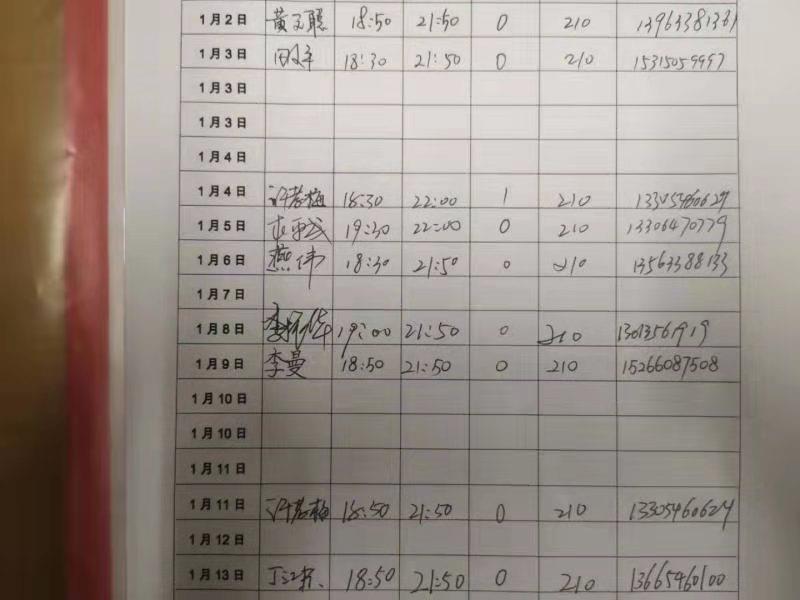 1月2日 黄 聪 18:50 21:50 0 210
1月3日 18:30 21:50 0 210 15315059997
1月3日
1月3日
1月4日
1月4日 许春梅 18:30 22:00 1 210 13305460624
1月5日 19:30 22:00 0 210 13306470779
1月6日 燕伟 18:30 21:50 0 210 13563388133
1月7日
1月8日 19:00 21:50 0 210 13013561919
1月9日 李曼 18:50 21:50 0 210 15266087508
1月10日
1月10日
1月11日
1月11日 许春梅 18:50 21:50 0 210 13305460624
1月12日
1月13日 18:50 21:50 0 210 13665460100